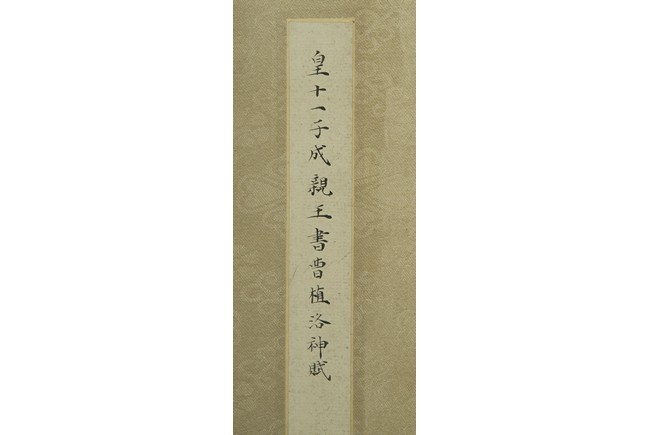 皇十一子成親王書曹植洛神賦